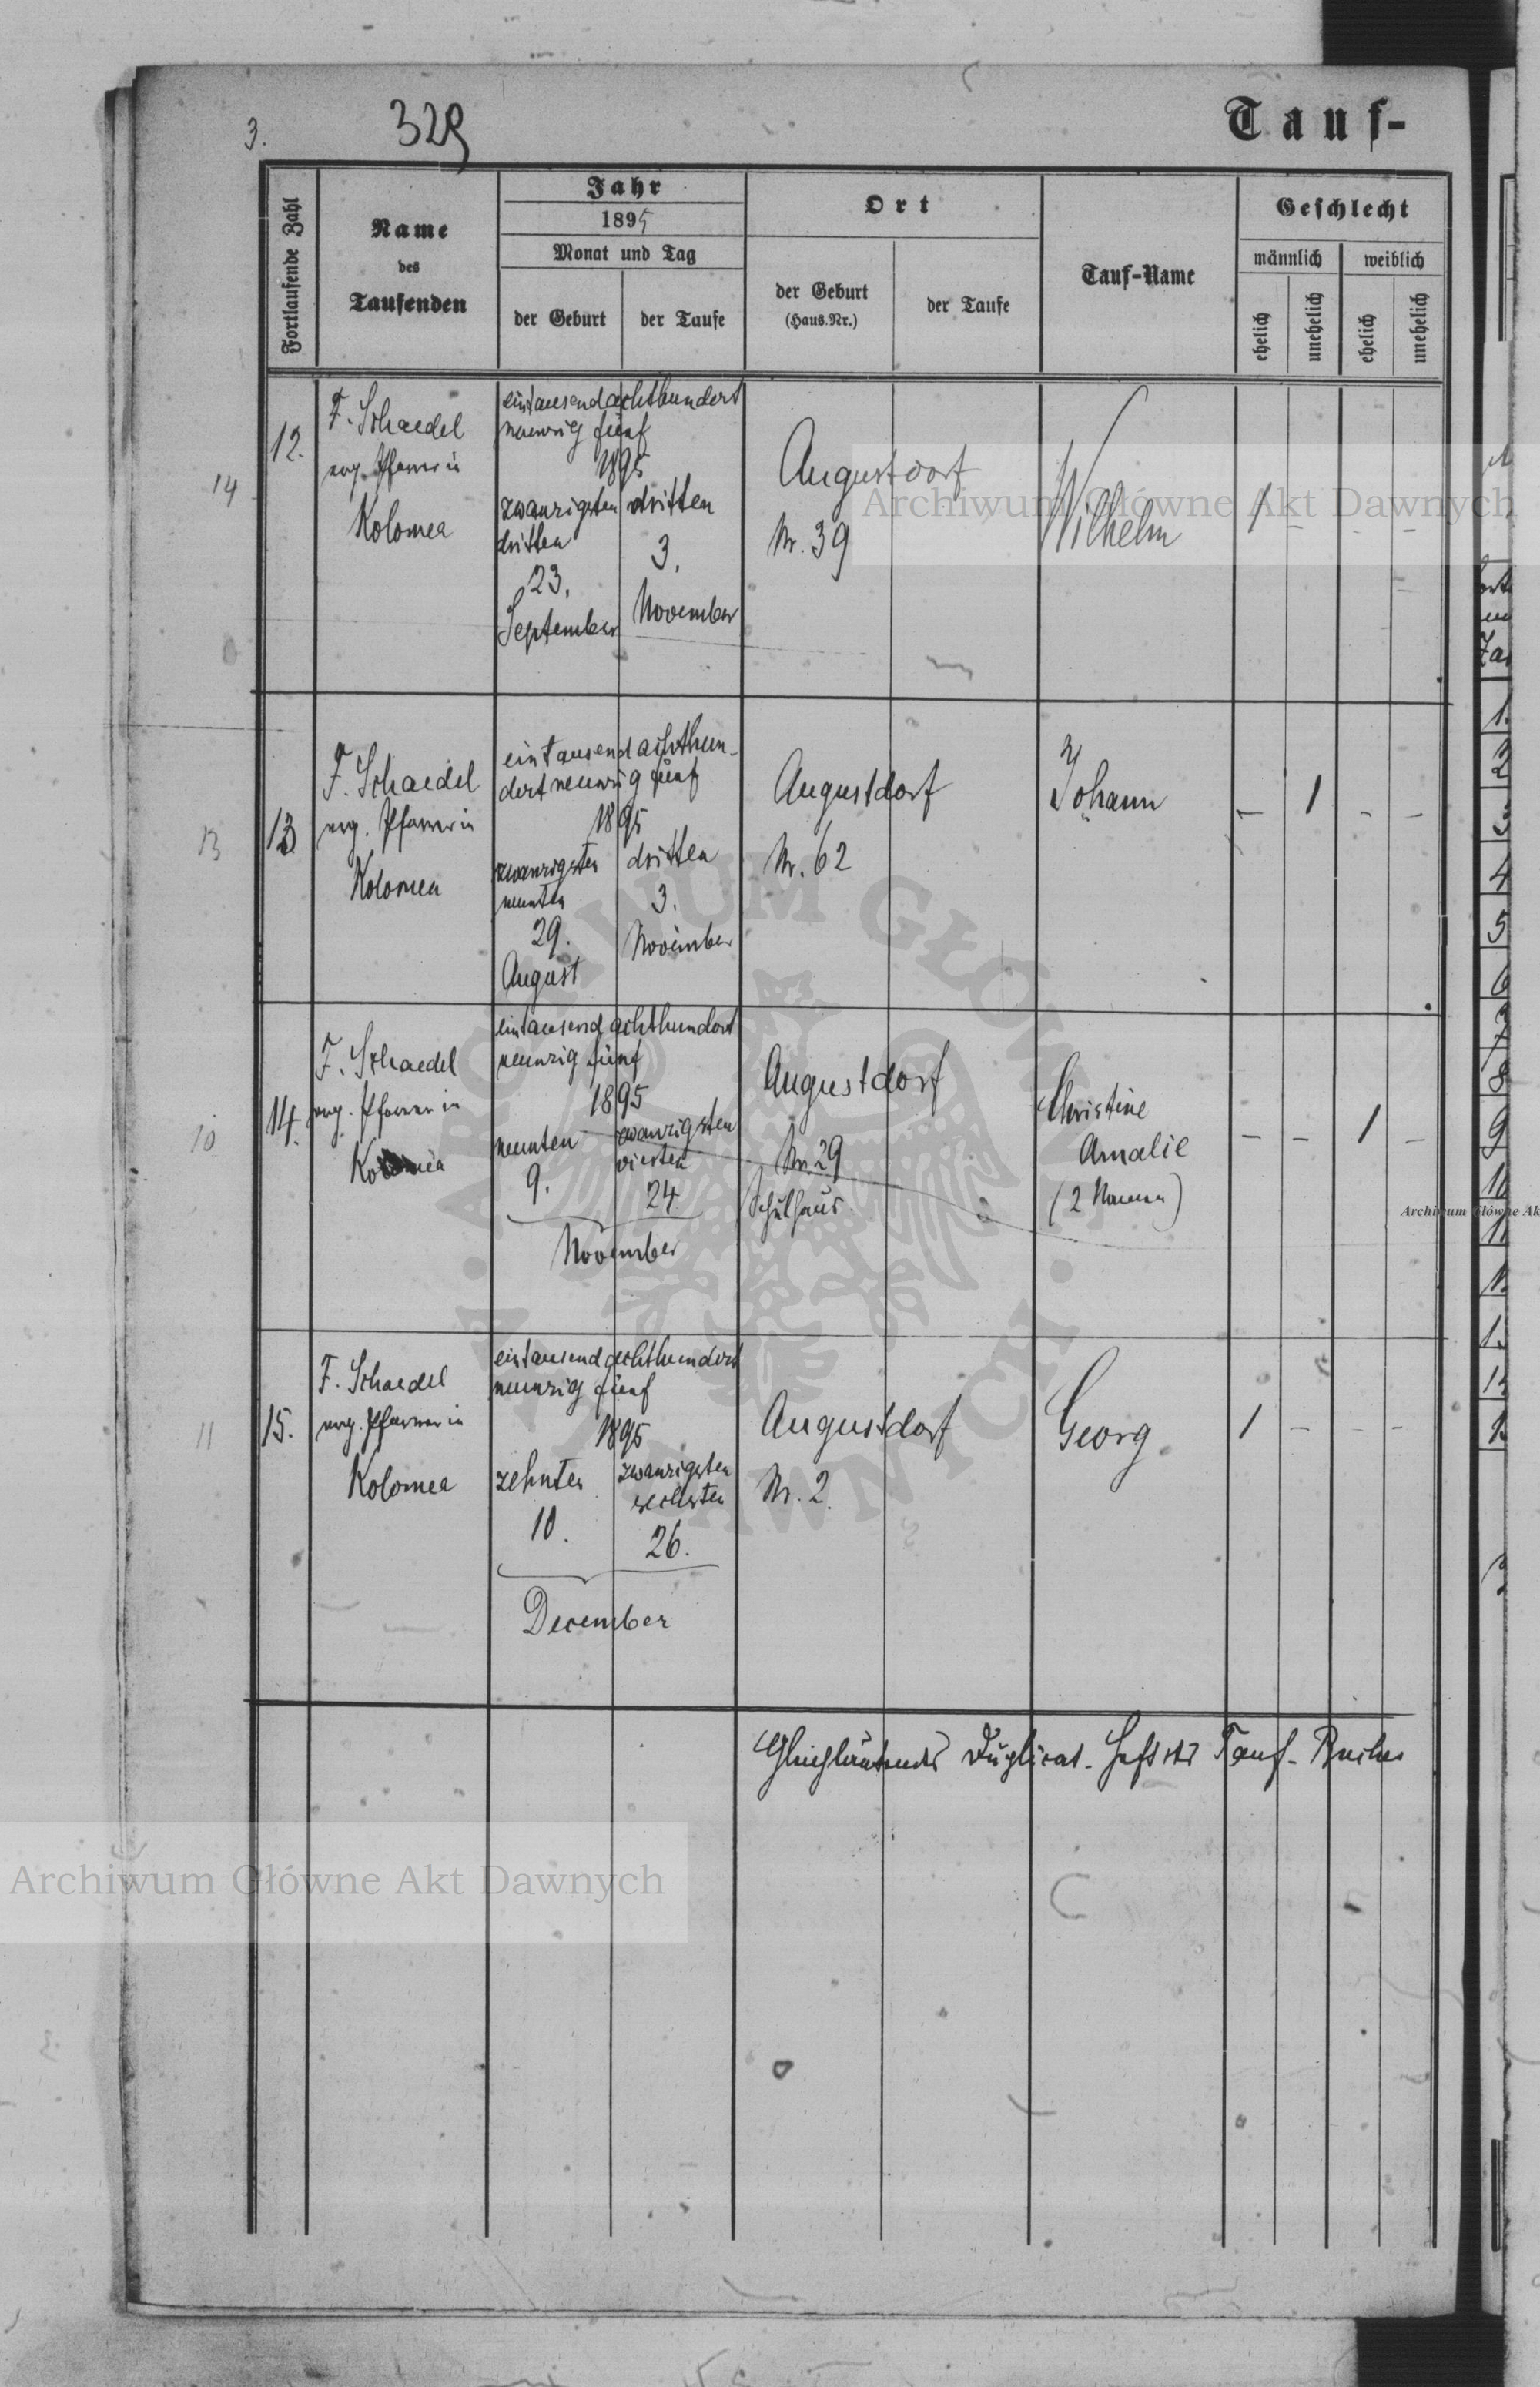 3.
329
Tauf-
Fortlaufende Zahl
Name
des
Taufenden
Jahr
1895
Monat und Tag
der Geburt
der Taufe
Ort
der Geburt
(Haus.Nr.)
der Taufe
Tauf-Name
Geschlecht
männlich
weiblich
ehelich
unehelich
ehelich
unehelich
14
12.
F. Schaedel
evg. Pfarrer in
Kolomea
eintausendachthundert
neunzig fünf
1895
zwanzigsten
dritten
23.
September
dritten
3.
November
Augustdorf
Nr. 39
Wilhelm
1 - - -
13
13
F. Schaedel
evg. Pfarrer in
Kolomea
eintausendachthun-
dertneunzig fünf
1895
zwanzigsten
neunten
29.
August
dritten
3.
November
Augustdorf
Nr. 62
Johann
- 1 - -
10
14.
F. Schaedel
evg. Pfarrer in
Kolomea
eintausendachthundert
neunzig fünf
1895
neunten
9.
zwanzigsten
vierten
24
November
Augustdorf
Nr. 29
Schulhaus.
Christine
Amalie
(2 Namen)
- - 1 -
11
15.
F. Schaedel
evg. Pfarrer in
Kolomea
eintausendachthundert
neunzig fünf
1895
zehnten
10.
zwanzigsten
sechsten
26.
December
Augustdorf
Nr. 2.
Georg
1 - - -
Gleichlautendes Duplicat-Heft des Tauf-Buches
Archiwum Główne Akt Dawnych
Archiwum Główne Akt Dawnych
Archiwum Główne Ak